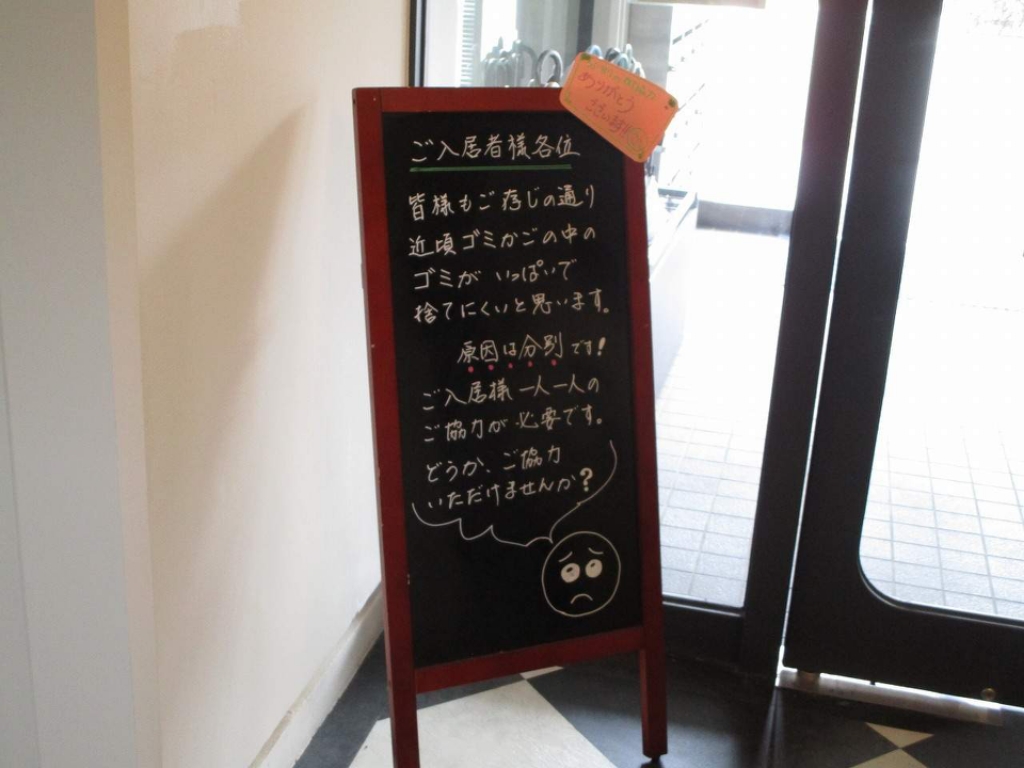 ご入居者様各位
皆様もご存じの通り
近頃ゴミかごの中の
ゴミがいっぱいで
捨てにくいと思います。
原因は分別です!
ご入居様一人一人の
ご協力が必要です。
どうか、ご協力
いただけませんか?
ありがとう
ございます!!